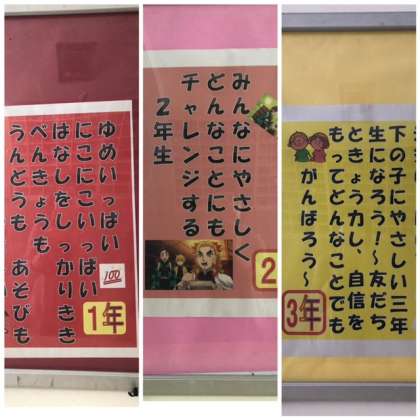 ゆめいっぱい
にこにこいっぱい
はなしをしっかりきき
べんきょうも
うんどうも あそびも
100
1年
みんなにやさしく
どんなことにも
チャレンジする
2年生
2
下の子にやさしい三年
生になろう!~友だち
ときょう力し、自信を
もってどんなことでも
がんばろう~
3年